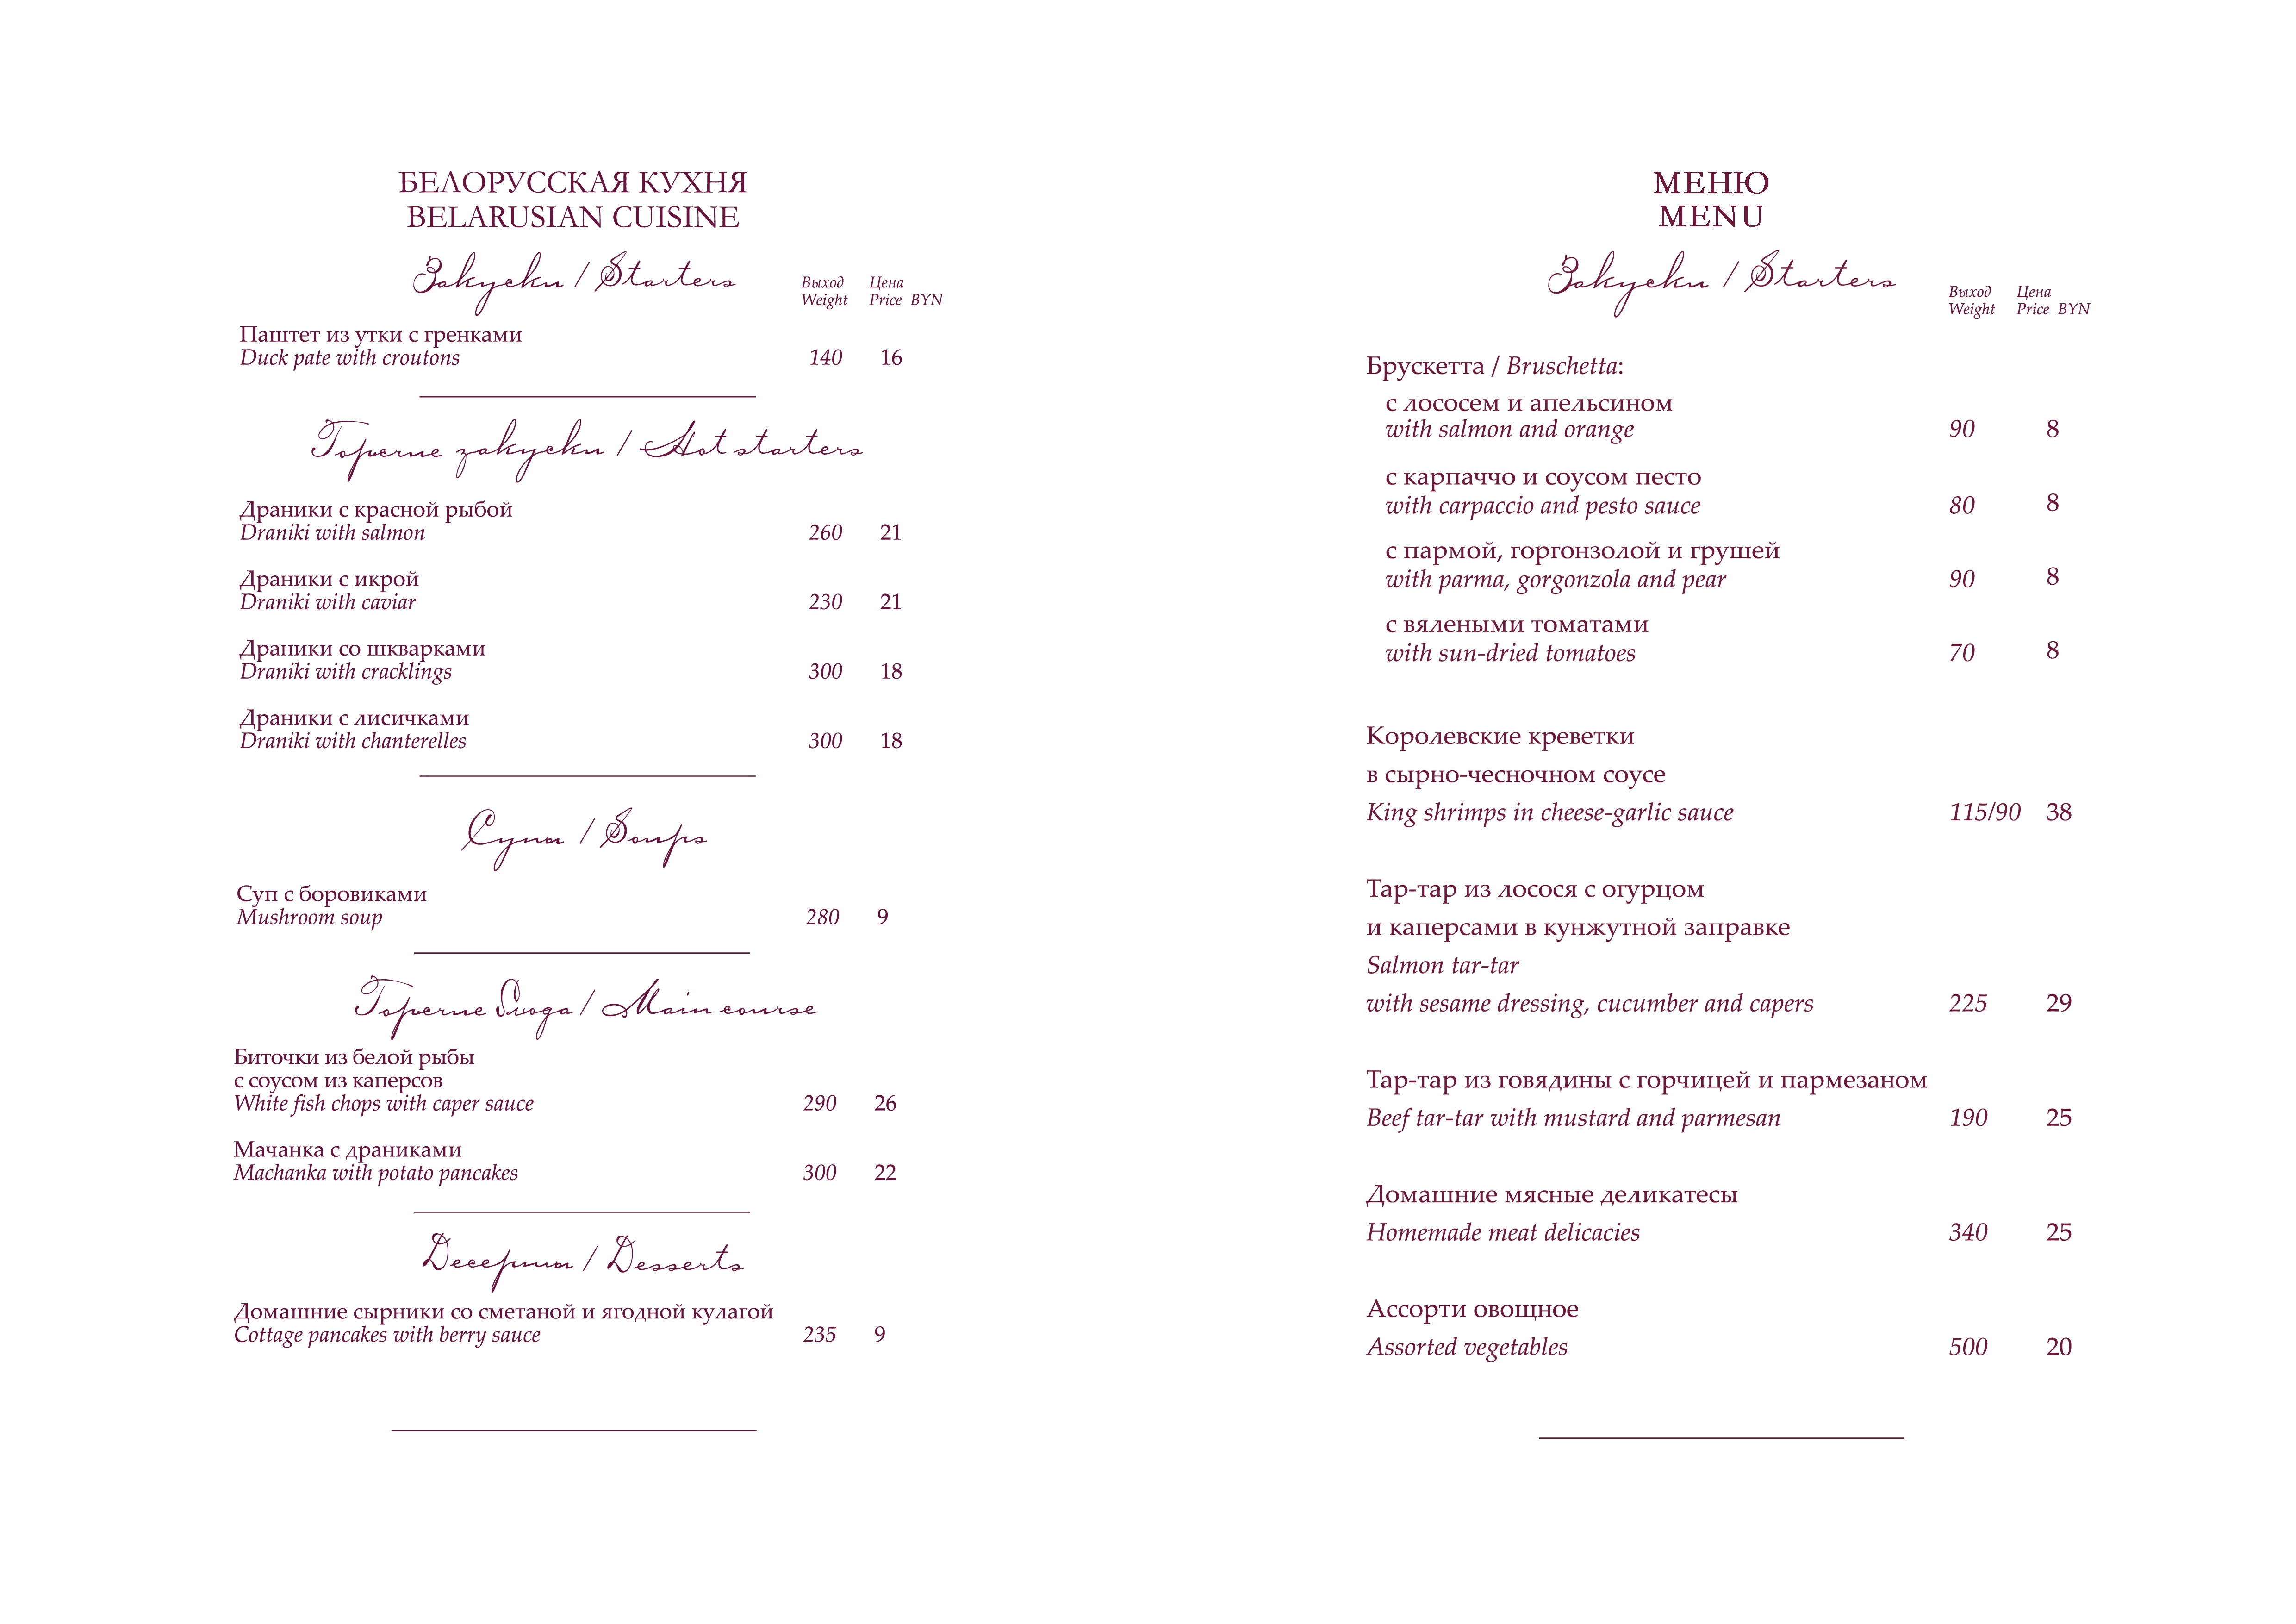 БЕЛОРУССКАЯ КУХНЯ
BELARUSIAN CUISINE
Закуски / Starters
Выход Цена
Weight Price BYN
Паштет из утки с гренками
Duck pate with croutons 140 16
Горячие закуски / Hot starters
Драники с красной рыбой
Draniki with salmon 260 21
Драники с икрой
Draniki with caviar 230 21
Драники со шкварками
Draniki with cracklings 300 18
Драники с лисичками
Draniki with chanterelles 300 18
Супы / Soups
Суп с боровиками
Mushroom soup 280 9
Горячие блюда / Main course
Биточки из белой рыбы
с соусом из каперсов
White fish chops with caper sauce 290 26
Мачанка с драниками
Machanka with potato pancakes 300 22
Десерты / Desserts
Домашние сырники со сметаной и ягодной кулагой
Cottage pancakes with berry sauce 235 9
МЕНЮ
MENU
Закуски / Starters
Выход Цена
Weight Price BYN
Брускетта / Bruschetta:
с лососем и апельсином
with salmon and orange 90 8
с карпаччо и соусом песто
with carpaccio and pesto sauce 80 8
с пармой, горгонзолой и грушей
with parma, gorgonzola and pear 90 8
с вялеными томатами
with sun-dried tomatoes 70 8
Королевские креветки
в сырно-чесночном соусе
King shrimps in cheese-garlic sauce 115/90 38
Тар-тар из лосося с огурцом
и каперсами в кунжутной заправке
Salmon tar-tar
with sesame dressing, cucumber and capers 225 29
Тар-тар из говядины с горчицей и пармезаном
Beef tar-tar with mustard and parmesan 190 25
Домашние мясные деликатесы
Homemade meat delicacies 340 25
Ассорти овощное
Assorted vegetables 500 20